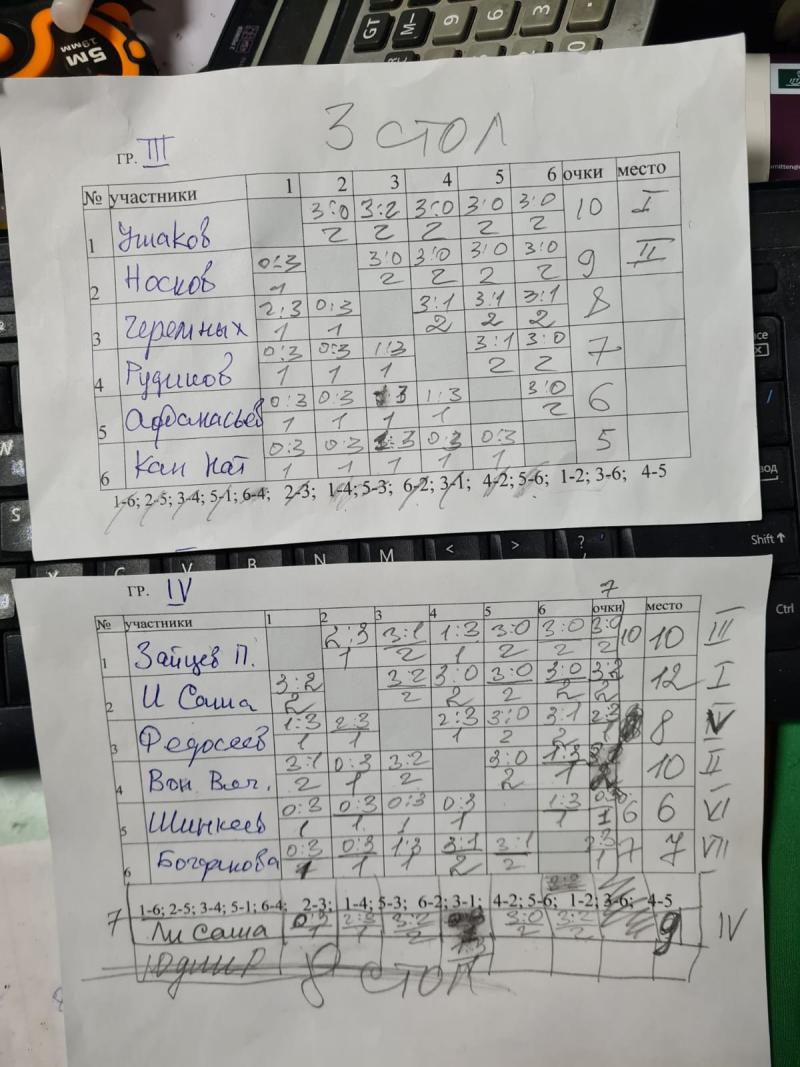 5M
19мм
GT
M-
9
6
3
0
3 стол
ГР. III
№ участники 1 2 3 4 5 6 очки место
1 Ушаков 3:0 3:2 3:0 3:0 3:0 10 I
2 2 2 2 2
2 Носков 0:3 3:0 3:0 3:0 3:0 9 II
1 2 2 2 2
3 Черемных 2:3 0:3 3:1 3:1 3:1 8
1 1 2 2 2
4 Рудиков 0:3 0:3 1:3 3:1 3:0 7
1 1 1 2 2
5 Афанасьев 0:3 0:3 1:3 3:0 6
1 1 1 1 2
6 Кан Нат 0:3 0:3 0:3 0:3 5
1 1 1 1 1
1-6; 2-5; 3-4; 5-1; 6-4; 2-3; 1-4; 5-3; 6-2; 3-1; 4-2; 5-6; 1-2; 3-6; 4-5
Shift
Ctrl
N M < >
ГР. IV
7
№ участники 1 2 3 4 5 6 очки место
1 Зайцев П. 2:3 3:1 1:3 3:0 3:0 3:0 10 10 III
1 2 1 2 2 2
2 И Саша 3:2 3:2 3:0 3:0 3:0 12 I
2 2 2 2 2 2
3 Федосеев 1:3 2:3 2:3 3:0 3:1 2:3 8 V
1 1 1 2 2 1
4 Вон 3:1 0:3 3:2 3:0 1:3 10 II
2 1 2 2 1
5 Шинкеев 0:3 0:3 0:3 0:3 1:3 6 6 VI
1 1 1 1 1 1
6 Богданова 0:3 0:3 1:3 3:1 3:1 2:3 7 7 VII
1 1 1 2 2 1
1-6; 2-5; 3-4; 5-1; 6-4; 2-3; 1-4; 5-3; 6-2; 3-1; 4-2; 5-6; 1-2; 3-6; 4-5
7 Ли Саша 0:3 3:2 3:0 3:2 9 IV
1 1 2 2 2
1:3
8 стол